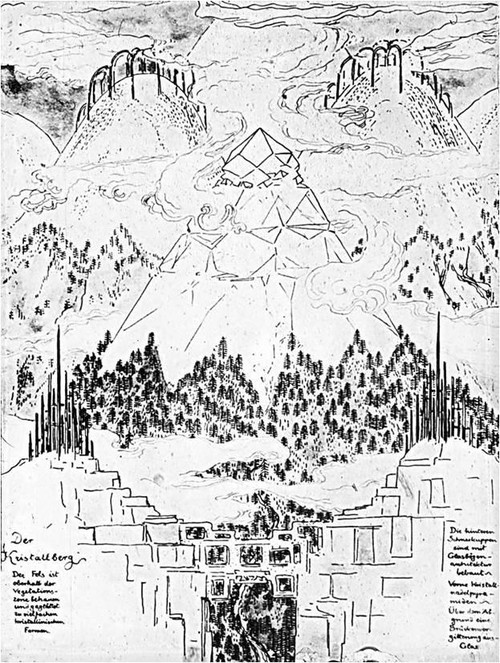 Der
Kristallberg
Der Fels ist
oberhalb der
Vegetations-
zone behauen
und geglättet
zu vielfachen
kristallinischen
Formen
Die hinteren
Schneekuppen
sind mit
Glasbogen-
architektur
bebaut
Vorne Kristall-
nadelpyra-
miden
Über dem Ab-
grund eine
Brücke
aus
Glas